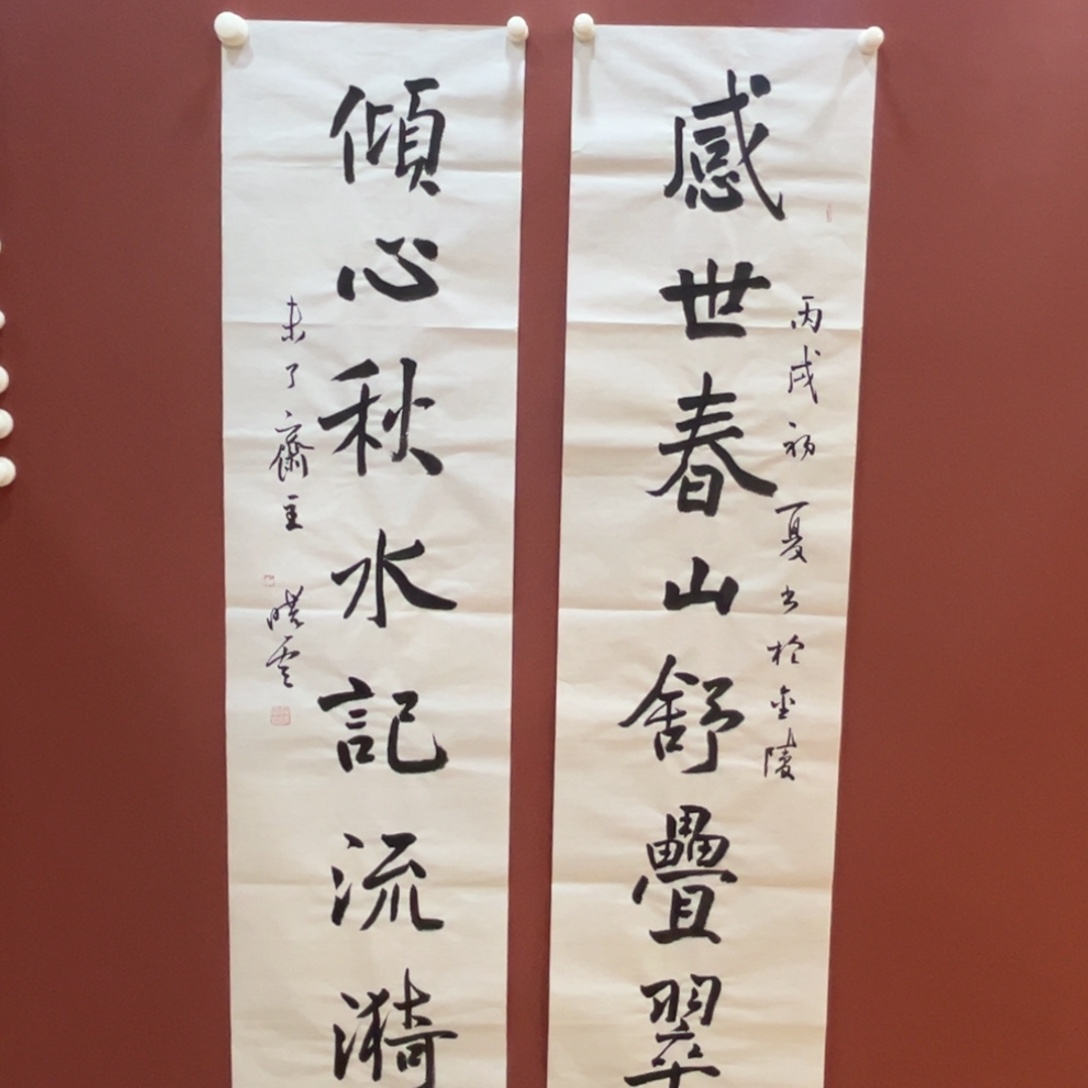 感世春山舒疊翠
丙戌初夏書於金陵
傾心秋水記流漪
未了齋主
曉雲